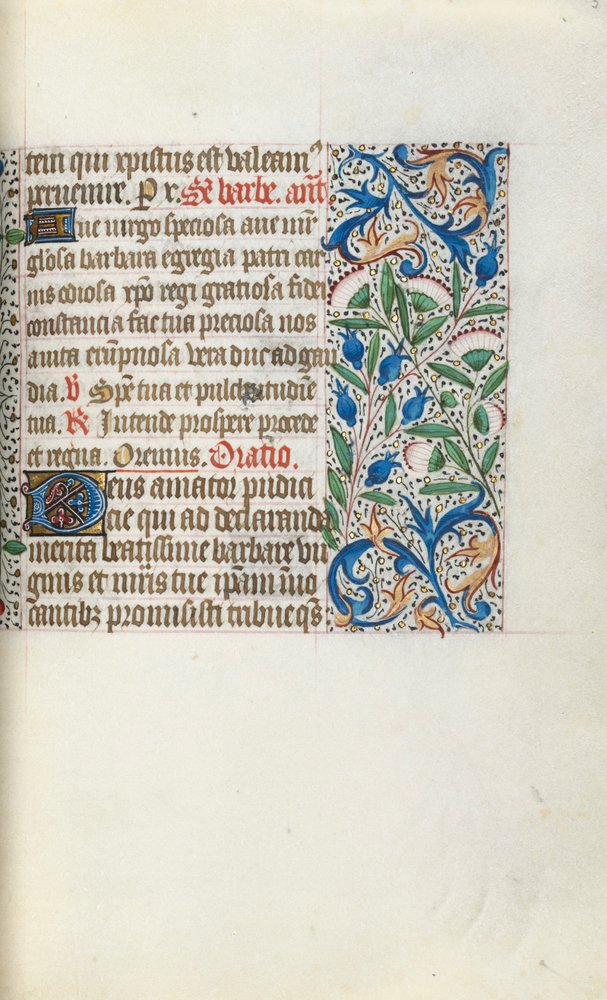 tem qui xpistus est valeam⁹
peruenire. P x. Sce barbe. ant
Aue uirgo speciosa aue um
glosa barbara egregia patri car
nis odiosa xpo regi gratiosa fidei
constancia fac tua preciosa nos
a uita erumpnosa vera duc ad gau
dia. V Spe tua et pulchritudine
tua. R Intende prospere procede
et regna. Oremus. Oratio.
Deus amator pudici
cie qui ad declaranda
merita beatissime barbare vir
ginis et mris tue ipam inuo
cantibz promisisti tribue qs